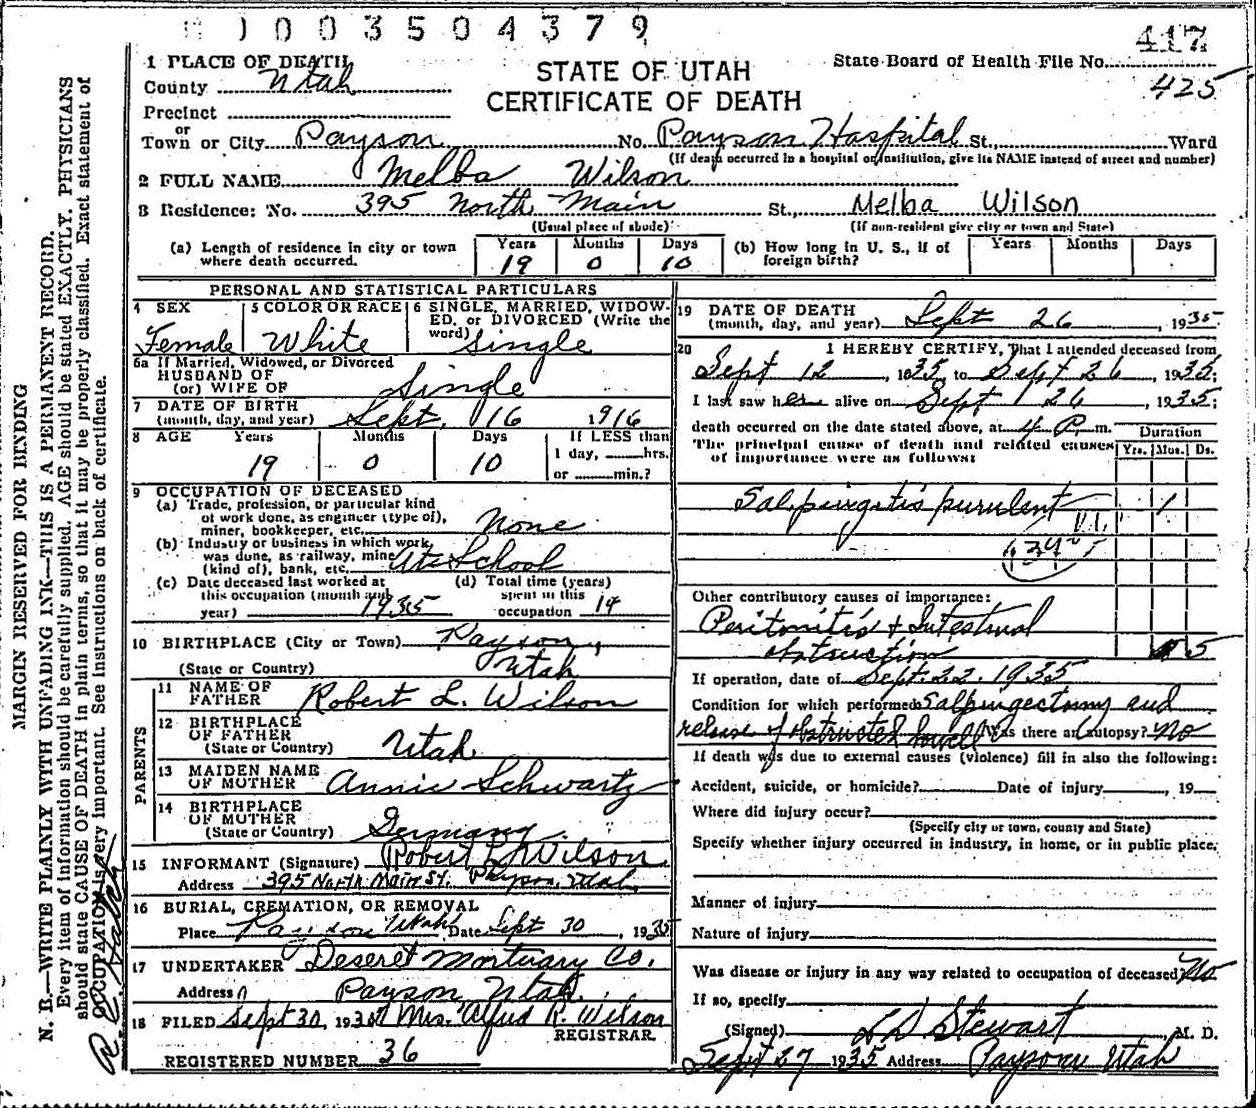 1003504379
417
1 PLACE OF DEATH
STATE OF UTAH
CERTIFICATE OF DEATH
State Board of Health File No.
425
County Utah
Precinct
or
Town or City Payson No. Payson Hospital St., Ward
(If death occurred in a hospital or institution, give its NAME instead of street and number)
2 FULL NAME Melba Wilson
3 Residence: No. 395 North Main St., Melba Wilson
(Usual place of abode) (If non-resident give city or town and State)
(a) Length of residence in city or town where death occurred. Years 19 Months 0 Days 10
(b) How long in U. S., if of foreign birth? Years Months Days
PERSONAL AND STATISTICAL PARTICULARS
4 SEX Female
5 COLOR OR RACE White
6 SINGLE, MARRIED, WIDOWED, or DIVORCED (Write the word) Single
6a If Married, Widowed, or Divorced
HUSBAND OF
(or) WIFE OF Single
7 DATE OF BIRTH
(month, day, and year) Sept. 16 1916
8 AGE Years Months Days If LESS than
19 0 10 1 day, hrs.
or min.?
9 OCCUPATION OF DECEASED
(a) Trade, profession, or particular kind
of work done, as engineer (type of),
miner, bookkeeper, etc. None
(b) Industry or business in which work
was done, as railway, mine
(kind of), bank, etc. At School
(c) Date deceased last worked at
this occupation (month and
year) 1935
(d) Total time (years)
spent in this
occupation 14
10 BIRTHPLACE (City or Town) Payson,
(State or Country) Utah
PARENTS
11 NAME OF
FATHER Robert L. Wilson
12 BIRTHPLACE
OF FATHER
(State or Country) Utah
13 MAIDEN NAME
OF MOTHER Annie Schwartz
14 BIRTHPLACE
OF MOTHER
(State or Country) Germany
15 INFORMANT (Signature) Robert L. Wilson
Address 395 North Main St. Payson, Utah
16 BURIAL, CREMATION, OR REMOVAL
Place Payson Utah Date Sept 30, 1935
17 UNDERTAKER Deseret Mortuary Co.
Address Payson Utah
18 FILED Sept 30, 1935 Mrs. Alfred R. Wilson
REGISTRAR
REGISTERED NUMBER 36
19 DATE OF DEATH
(month, day, and year) Sept 26, 1935
20 I HEREBY CERTIFY, That I attended deceased from
Sept 12, 1935, to Sept 26, 1935;
I last saw her alive on Sept 26, 1935;
death occurred on the date stated above, at 4 P. m.
The principal cause of death and related causes
of importance were as follows:
Duration
Yrs. Mos. Ds.
Salpingitis purulent 1
Other contributory causes of importance:
Peritonitis + Intestinal
obstruction 5
If operation, date of Sept. 22. 1935
Condition for which performed Salpingectomy and
release of obstructed bowell Was there an autopsy? No
If death was due to external causes (violence) fill in also the following:
Accident, suicide, or homicide? Date of injury, 19
Where did injury occur?
(Specify city or town, county and State)
Specify whether injury occurred in industry, in home, or in public place.
Manner of injury
Nature of injury
Was disease or injury in any way related to occupation of deceased? No
If so, specify
(Signed) L D Stewart M. D.
Sept 27 1935 Address Payson Utah
MARGIN RESERVED FOR BINDING
N. B.—WRITE PLAINLY WITH UNFADING INK—THIS IS A PERMANENT RECORD.
Every item of information should be carefully supplied. AGE should be stated EXACTLY. PHYSICIANS
should state CAUSE OF DEATH in plain terms, so that it may be properly classified. Exact statement of
OCCUPATION is very important. See instructions on back of certificate.